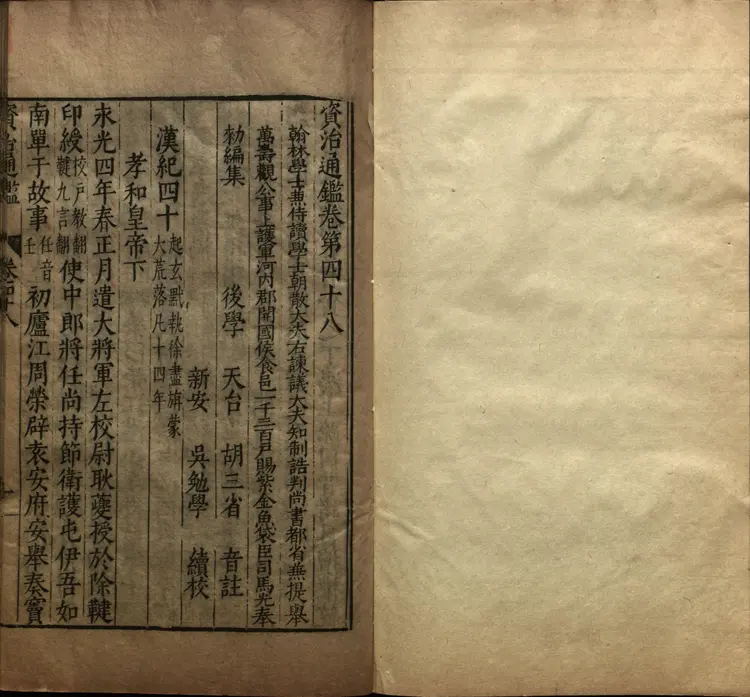 資治通鑑卷第四十八
翰林學士兼侍讀學士朝散大夫右諫議大夫知制誥判尚書都省兼提舉
萬壽觀公事上護軍河內郡開國侯食邑一千三百戶賜紫金魚袋臣司馬光奉
勑編集
後學 天台 胡三省 音註
新安 吳勉學 續校
漢紀四十 起玄黓執徐盡旃蒙大荒落凡十四年
孝和皇帝下
永光四年春正月遣大將軍左校尉耿夔授於除鞬
印綬 校戶教翻鞬九言翻 使中郎將任尚持節衛護屯伊吾如
南單于故事 任音壬 初廬江周榮辟袁安府安舉奏竇
資治通鑑 卷四十八